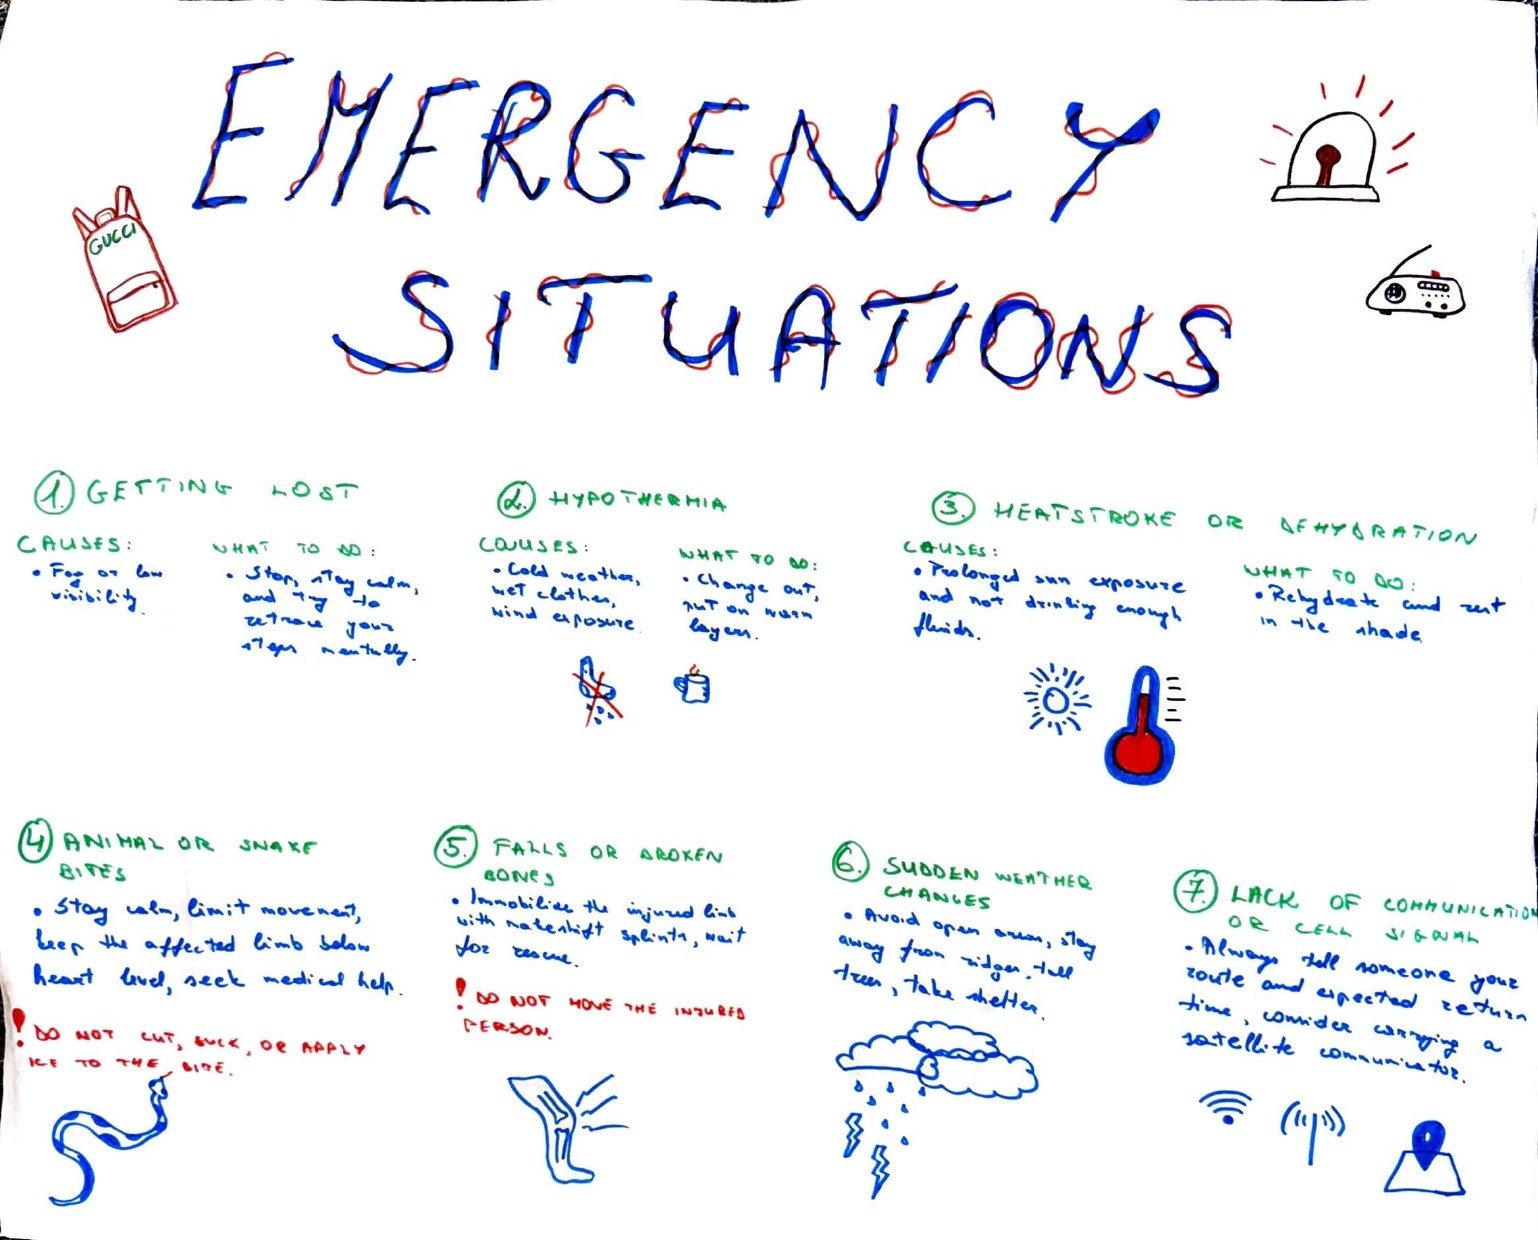 EMERGENCY
SITUATIONS
GUCCI
1. GETTING LOST
CAUSES:
• Fog or low
visibility.
WHAT TO DO:
• Stop, stay calm,
and try to
retrace your
steps mentally.
2. HYPOTHERMIA
CAUSES:
• Cold weather,
wet clothes,
wind exposure.
WHAT TO DO:
• Change out,
put on warm
layers.
3. HEATSTROKE OR DEHYDRATION
CAUSES:
• Prolonged sun exposure
and not drinking enough
fluids.
WHAT TO DO:
• Rehydrate and rest
in the shade
4 ANIMAL OR SNAKE
BITES
• Stay calm, limit movement,
keep the affected limb below
heart level, seek medical help.
! DO NOT CUT, SUCK, OR APPLY
ICE TO THE BITE.
5. FALLS OR BROKEN
BONES
• Immobilize the injured limb
with makeshift splints, wait
for rescue.
! DO NOT MOVE THE INJURED
PERSON.
6. SUDDEN WEATHER
CHANGES
• Avoid open areas, stay
away from ridges, tall
trees, take shelter.
7. LACK OF COMMUNICATION
OR CELL SIGNAL
• Always tell someone your
route and expected return
time, consider carrying a
satellite communicator.